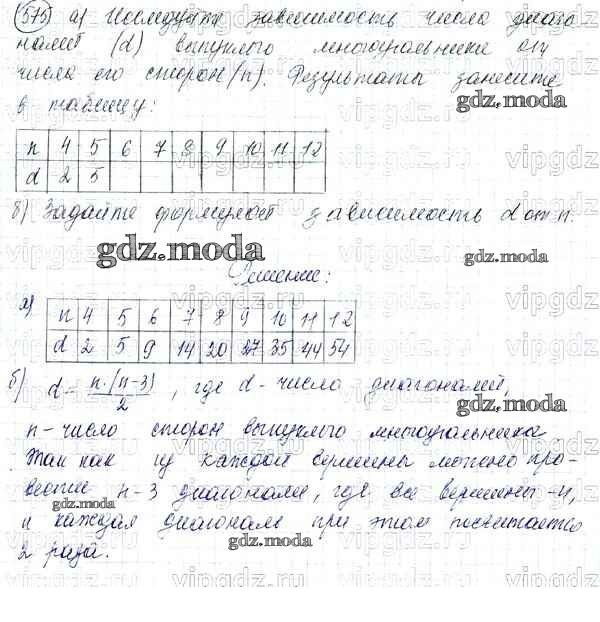 575 а) Исследуйте зависимость числа диаго
налей (d) выпуклого многоугольника от
числа его сторон (n). Результаты занесите
в таблицу:
gdz.moda
n 4 5 6 7 8 9 10 11 12
d 2 5
б) Задайте формулой зависимость d от n.
gdz.moda
gdz.moda
Решение:
а) n 4 5 6 7 8 9 10 11 12
d 2 5 9 14 20 27 35 44 54
б) d = n·(n-3)/2, где d - число диагоналей,
gdz.moda
n - число сторон выпуклого многоугольника
Так как из каждой вершины можно про-
вести n-3 диагонали, где все вершины - n,
и каждая диагональ при этом посчитается
gdz.moda
2 раза.
vipgdz.ru